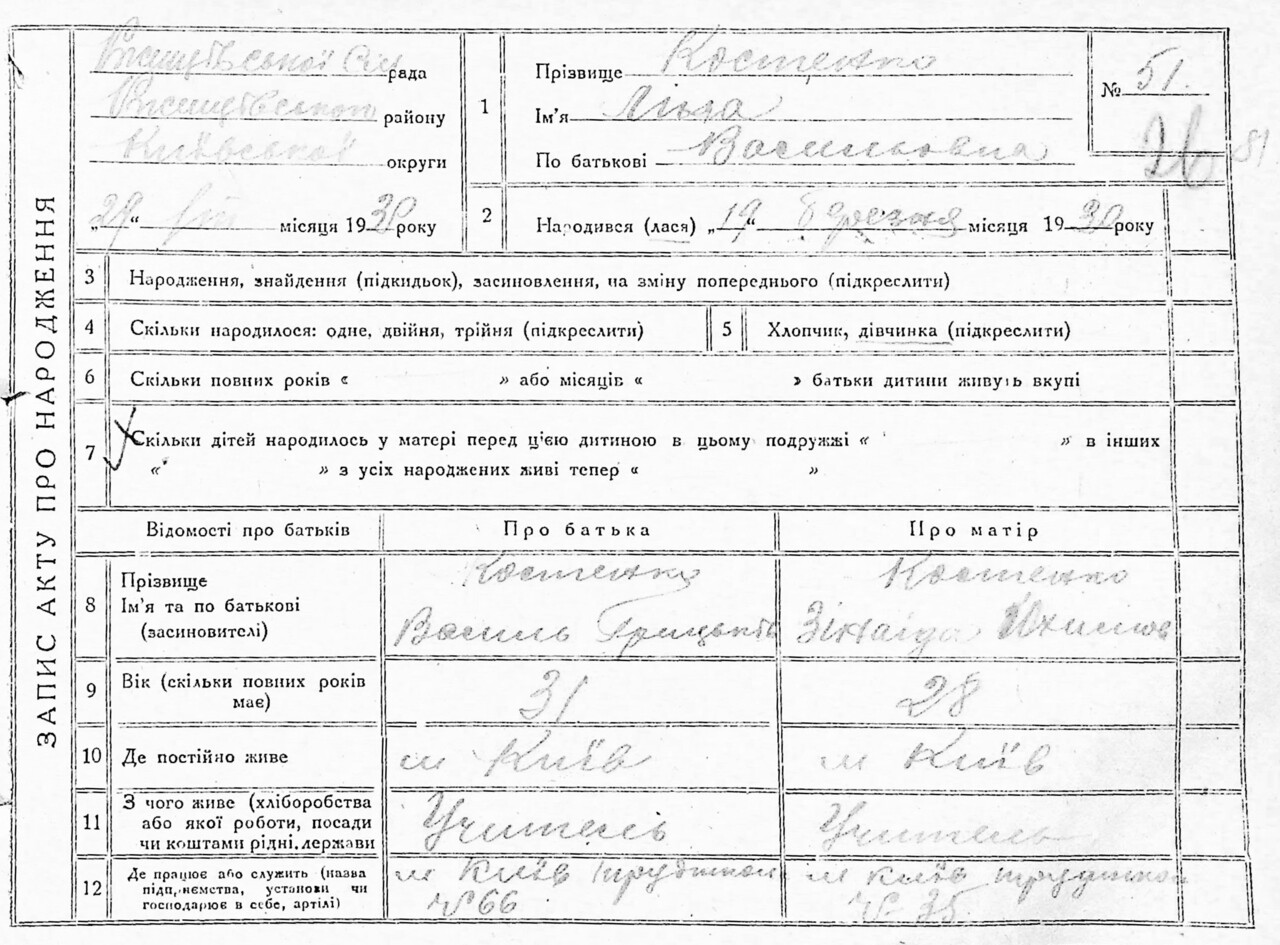 ЗАПИС АКТУ ПРО НАРОДЖЕННЯ
Ржищівської Сіл рада
Ржищівського району
Київської округи
„29“ місяця 1930 року
1 Прізвище Костенко
Ім'я Ліна
По батькові Васильовна
№ 51.
26 81
2 Народився (лася) „19“ березня місяця 1930 року
3 Народження, знайдення (підкидьок), засиновлення, на зміну попереднього (підкреслити)
4 Скільки народилося: одне, двійня, трійня (підкреслити) 5 Хлопчик, дівчинка (підкреслити)
6 Скільки повних років « » або місяців « » батьки дитини живуть вкупі
7 Скільки дітей народилось у матері перед ц'єю дитиною в цьому подружжі « » в інших
« » з усіх народжених живі тепер « »
Відомості про батьків Про батька Про матір
8 Прізвище Костенко Костенко
Ім'я та по батькові
(засиновителі) Василь Грицьків Зінаїда Юхимов
9 Вік (скільки повних років
має) 31 28
10 Де постійно живе м Київ м Київ
11 З чого живе (хліборобства
або якої роботи, посади
чи коштами рідні, держави Учитель Учитель
12 Де працює або служить (назва
підприємства, установи чи
господарює в себе, артілі) м Київ трудшкол м Київ трудшкол
№ 66 № 35